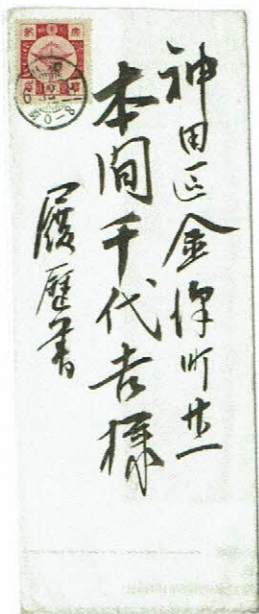 神田区金澤町廿一
本間千代吉様
履歴書